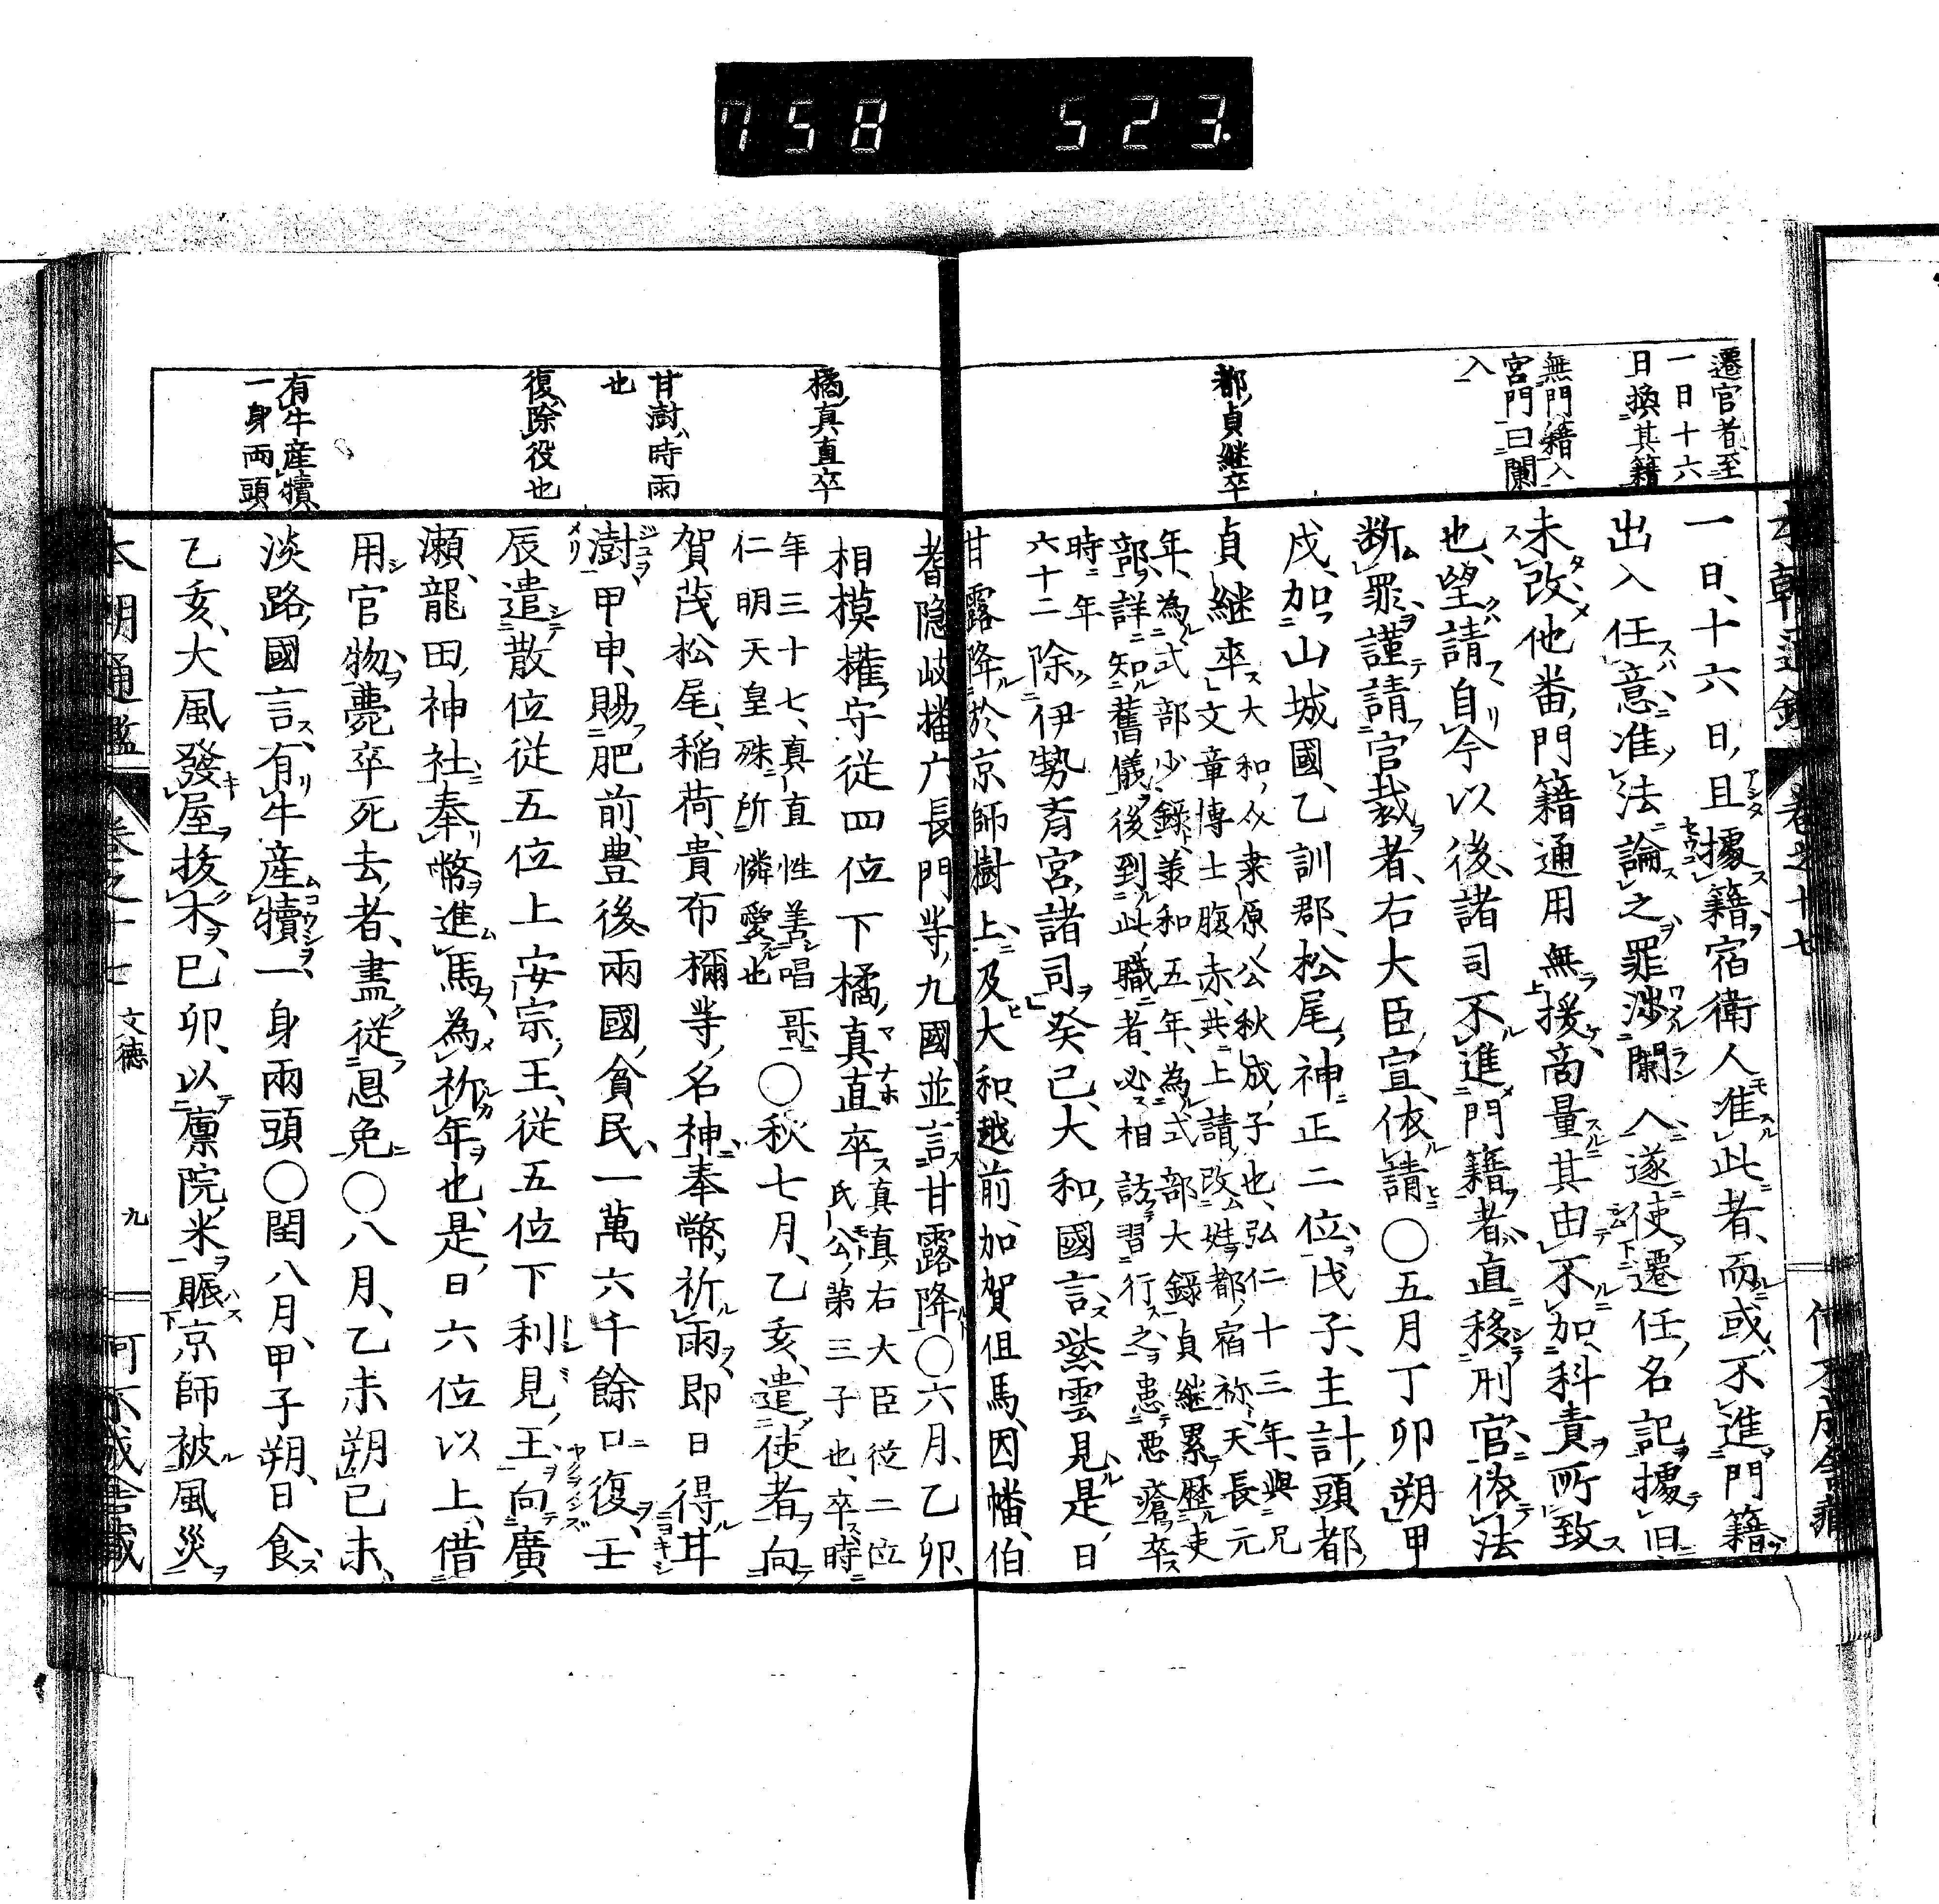 758 523
遷官者至
一日十六
日換其籍
無門籍入
宮門曰闌
入
都貞継卒
一日、十六日、且據籍宿衛人准此者、而或不進門籍
出入任意准法論之罪渉闌入遂使遷任名記據旧
未改他番門籍通用無援商量其由不加科責所致
也、望請自今以後、諸司不進門籍者直移刑官依法
断罪謹請官裁者、右大臣宣、依請〇五月丁卯朔甲
戌、加山城國、乙訓郡、松尾神正二位、戊子、主計頭都
貞継卒
大和介桒原公秋成子也、弘仁十三年、與兄
文章博士腹赤共上請改姓都宿祢、天長元
年、為式部少録、羕和五年、為式部大録貞継累歴吏
部、詳知舊儀後到此職者、必相訪習行之患悪瘡卒
時年
六十二
除伊勢斎宮諸司癸己、大和國言、紫雲見是日
甘露降於京師樹上、及大和、越前、加賀、但馬、因幡、伯
耆隠岐播广長門䒭九國、並言甘露降〇六月、乙卯、
相摸權守従四位下橘真直卒
真直右大臣從二位
氏公第三子也、卒時
年三十七、真直性善唱哥
仁明天皇殊所憐愛也
〇秋七月、乙亥、遣使者向
賀茂、松尾、稲荷、貴布禰䒭名神奉幣祈雨、即日得甘
澍甲申、賜肥前、豊後兩國貧民、一萬六千餘口復、壬
辰遣散位従五位上安宗王、従五位下利見王向廣
瀬、龍田神社奉幣進馬為祈年也、是日六位以上、借
用官物薨卒死去者、盡従恩免〇八月、乙未朔己未、
淡路國言、有牛産犢一身兩頭〇閏八月、甲子朔、日食
乙亥、大風發屋抜木、己卯、以廪院米賑京師被風災
橘真直卒
甘澍時雨
也
復除役也
有牛産犢
一身兩頭
本朝通鑑 卷之十七 文徳 九